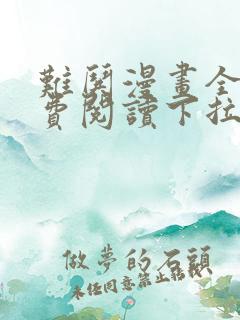 難鬪漫畫全
費閱讀下拉
做夢的石頭
未經同意禁止轉載